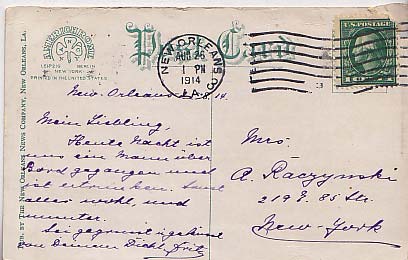 LEIPZIG BERLIN
NEW YORK
PRINTED IN THE UNITED STATES
PUB. BY THE NEW ORLEANS NEWS COMPANY, NEW ORLEANS, LA.
Post Card
NEW ORLEANS
AUG 26
1 PM
1914
LA.
U.S. POSTAGE
New Orleans 14.
Mein Liebling,
Heute Nacht ist
uns ein Mann über
Bord gegangen und
ist ertrunken. Sonst
alles wohl und
munter.
Sei gegrüsst u. geküsst
von Deinem Dich l. Fritz
Mrs.
A. Raczynski
219 E. 85 Str.
New-York